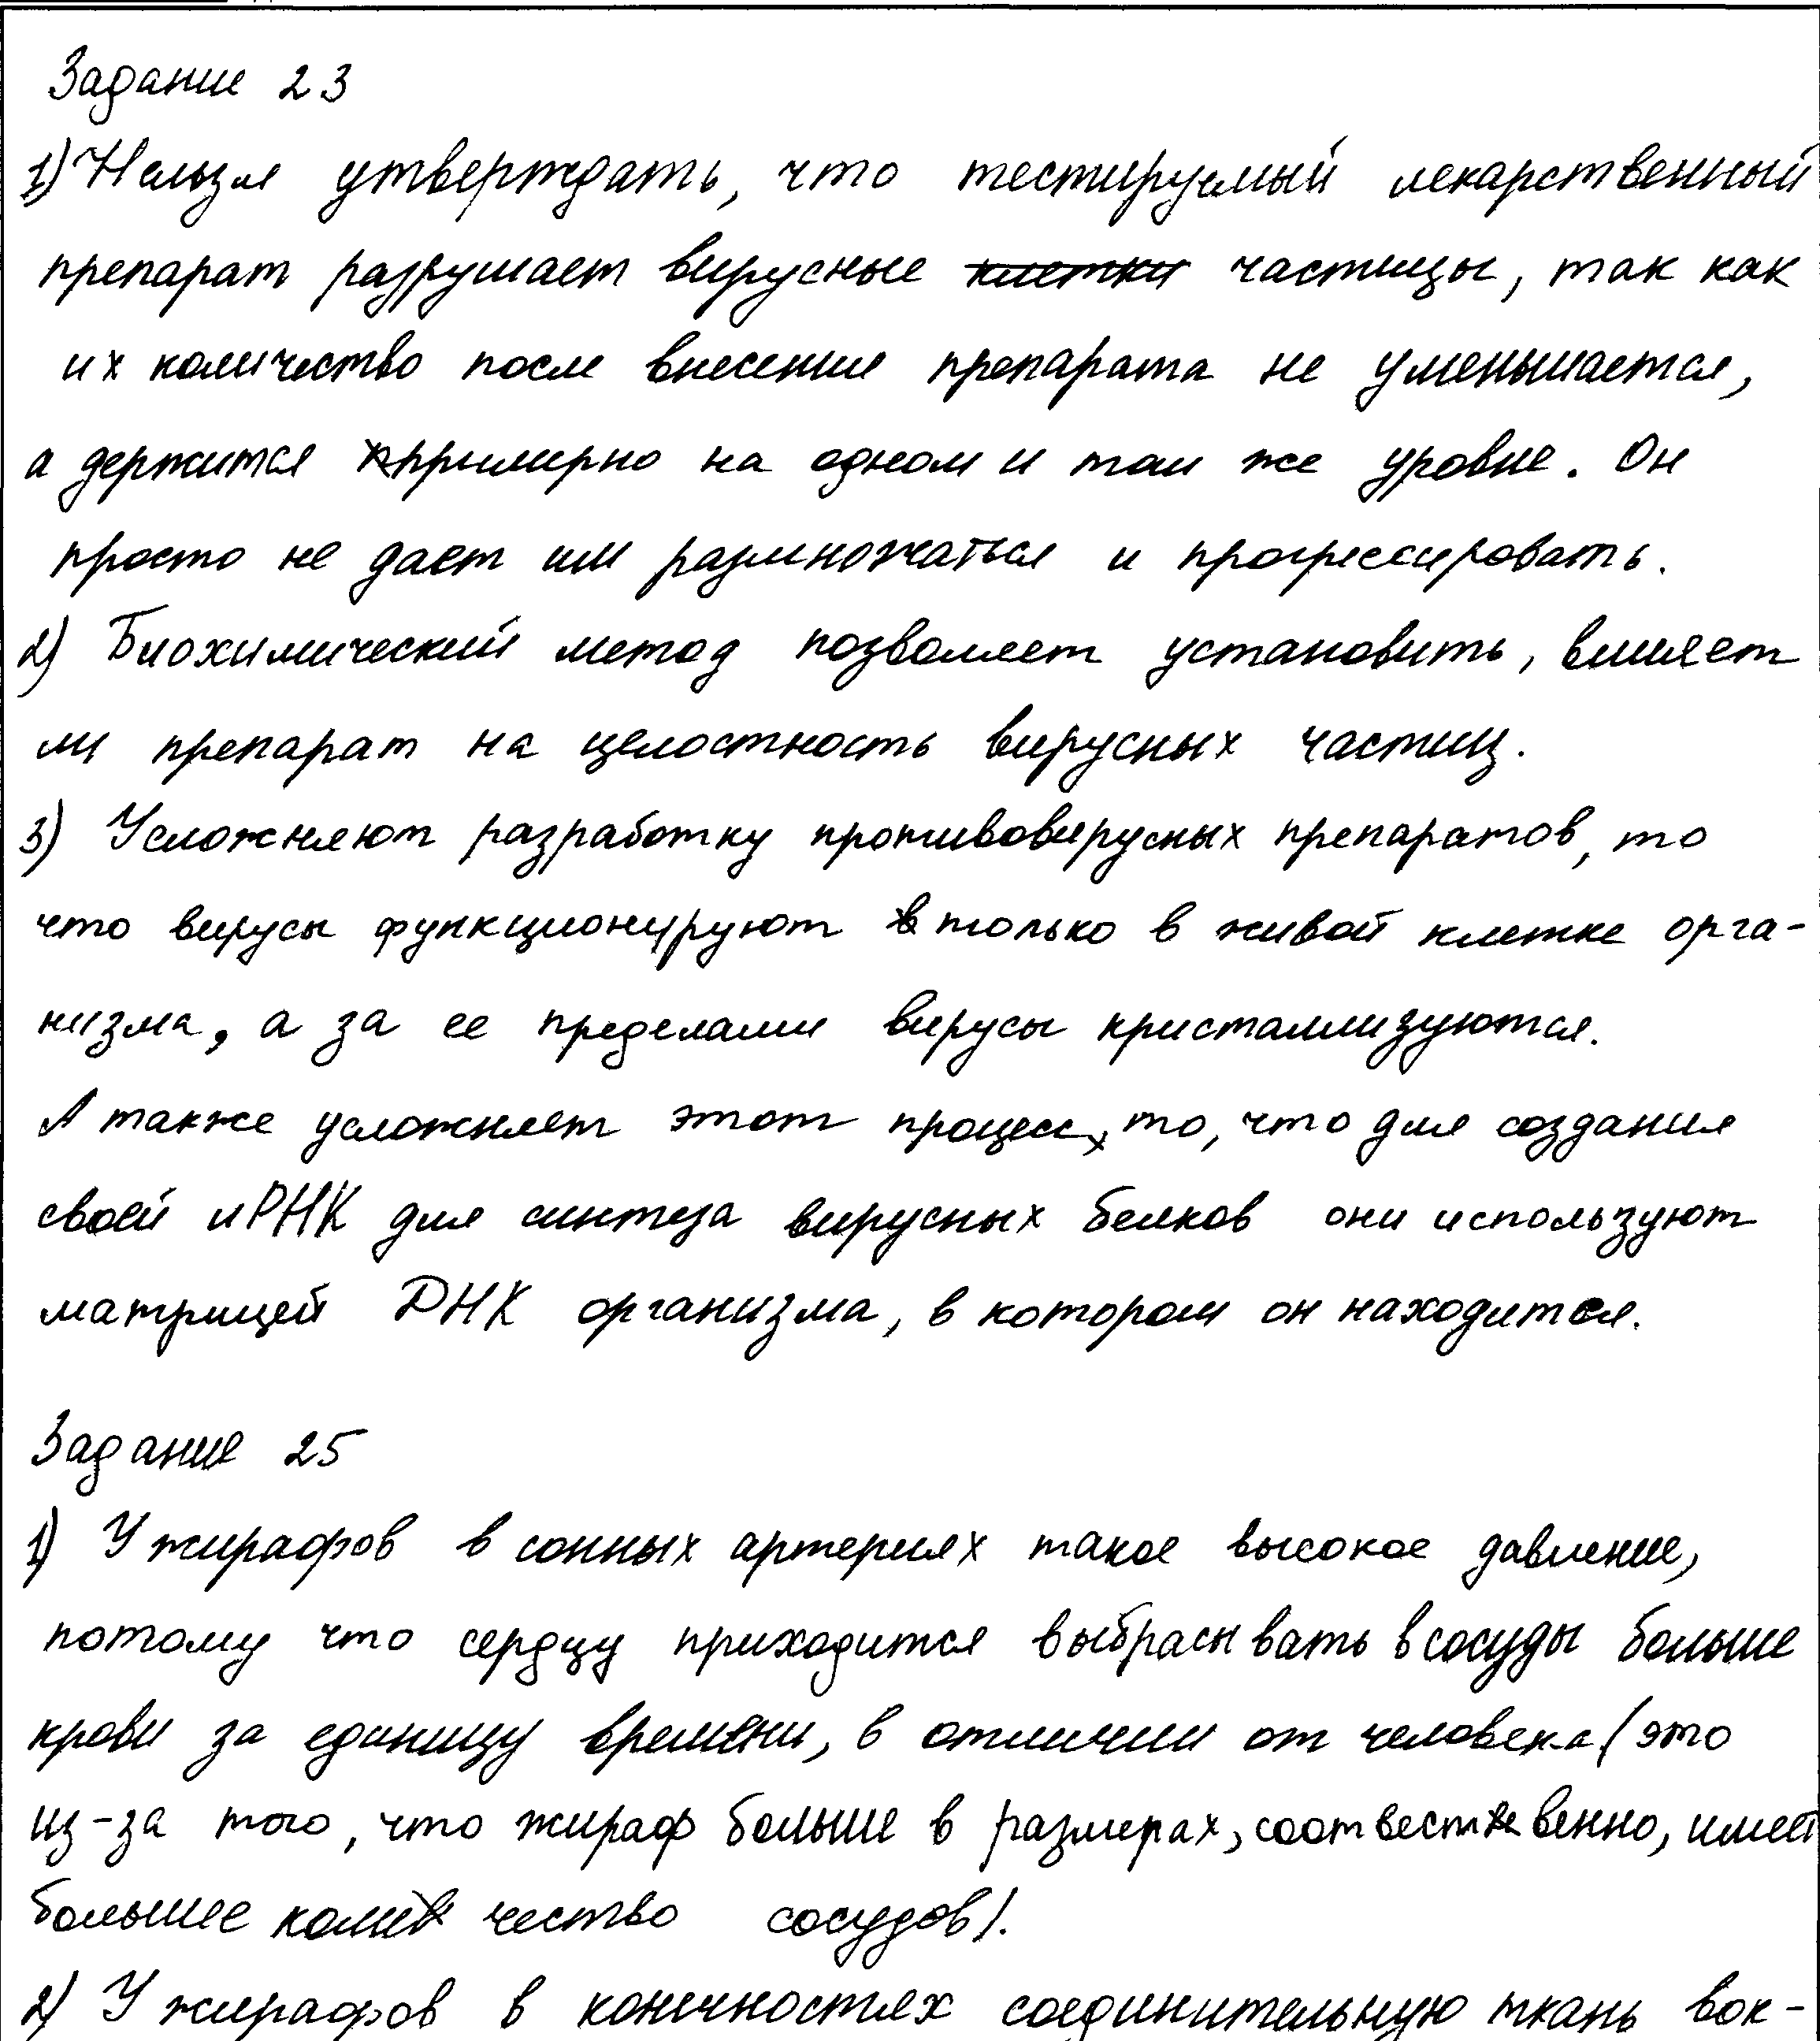 Задание 23
1) Нельзя утверждать, что тестируемый лекарственный
препарат разрушает вирусные клетки частицы, так как
их количество после внесение препарата не уменьшается,
а держится примерно на одном и том же уровне. Он
просто не дает им размножаться и прогрессировать.
2) Биохимический метод позволяет установить, влияет
ли препарат на целостность вирусных частиц.
3) Усложняют разработку противовирусных препаратов, то
что вирусы функционируют только в живой клетке орга-
низма, а за ее пределами вирусы кристаллизуются.
А также усложняет этот процесс то, что для создания
своей иРНК для синтеза вирусных белков они используют
матрицей ДНК организма, в котором он находится.
Задание 25
1) У жирафов в сонных артериях такое высокое давление,
потому что сердцу приходится выбрасывать в сосуды больше
крови за единицу времени, в отличии от человека (это
из-за того, что жираф больше в размерах, соответственно, имеет
большее количество сосудов).
2) У жирафов в конечностях соединительную ткань вок-